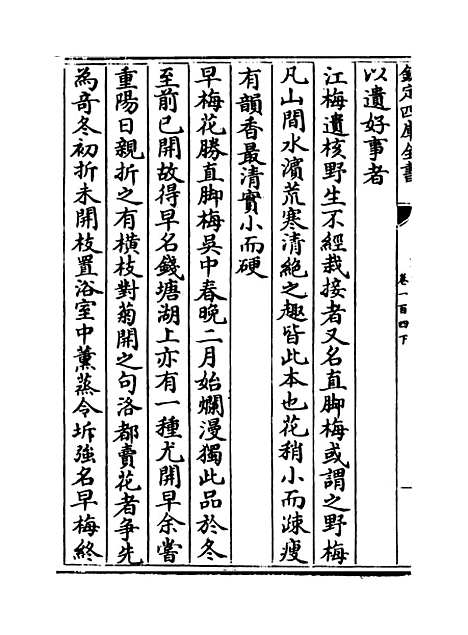 欽定四庫全書
卷一百四下
以遺好事者
江梅遺核野生不經栽接者又名直脚梅或謂之野梅
凡山間水濱荒寒清絶之趣皆此本也花稍小而疎瘦
有韻香最清實小而硬
早梅花勝直脚梅吳中春晚二月始爛漫獨此品於冬
至前已開故得早名錢塘湖上亦有一種尤開早余嘗
重陽日親折之有橫枝對菊開之句洛都賣花者争先
為奇冬初折未開枝置浴室中薰蒸令坼強名早梅終